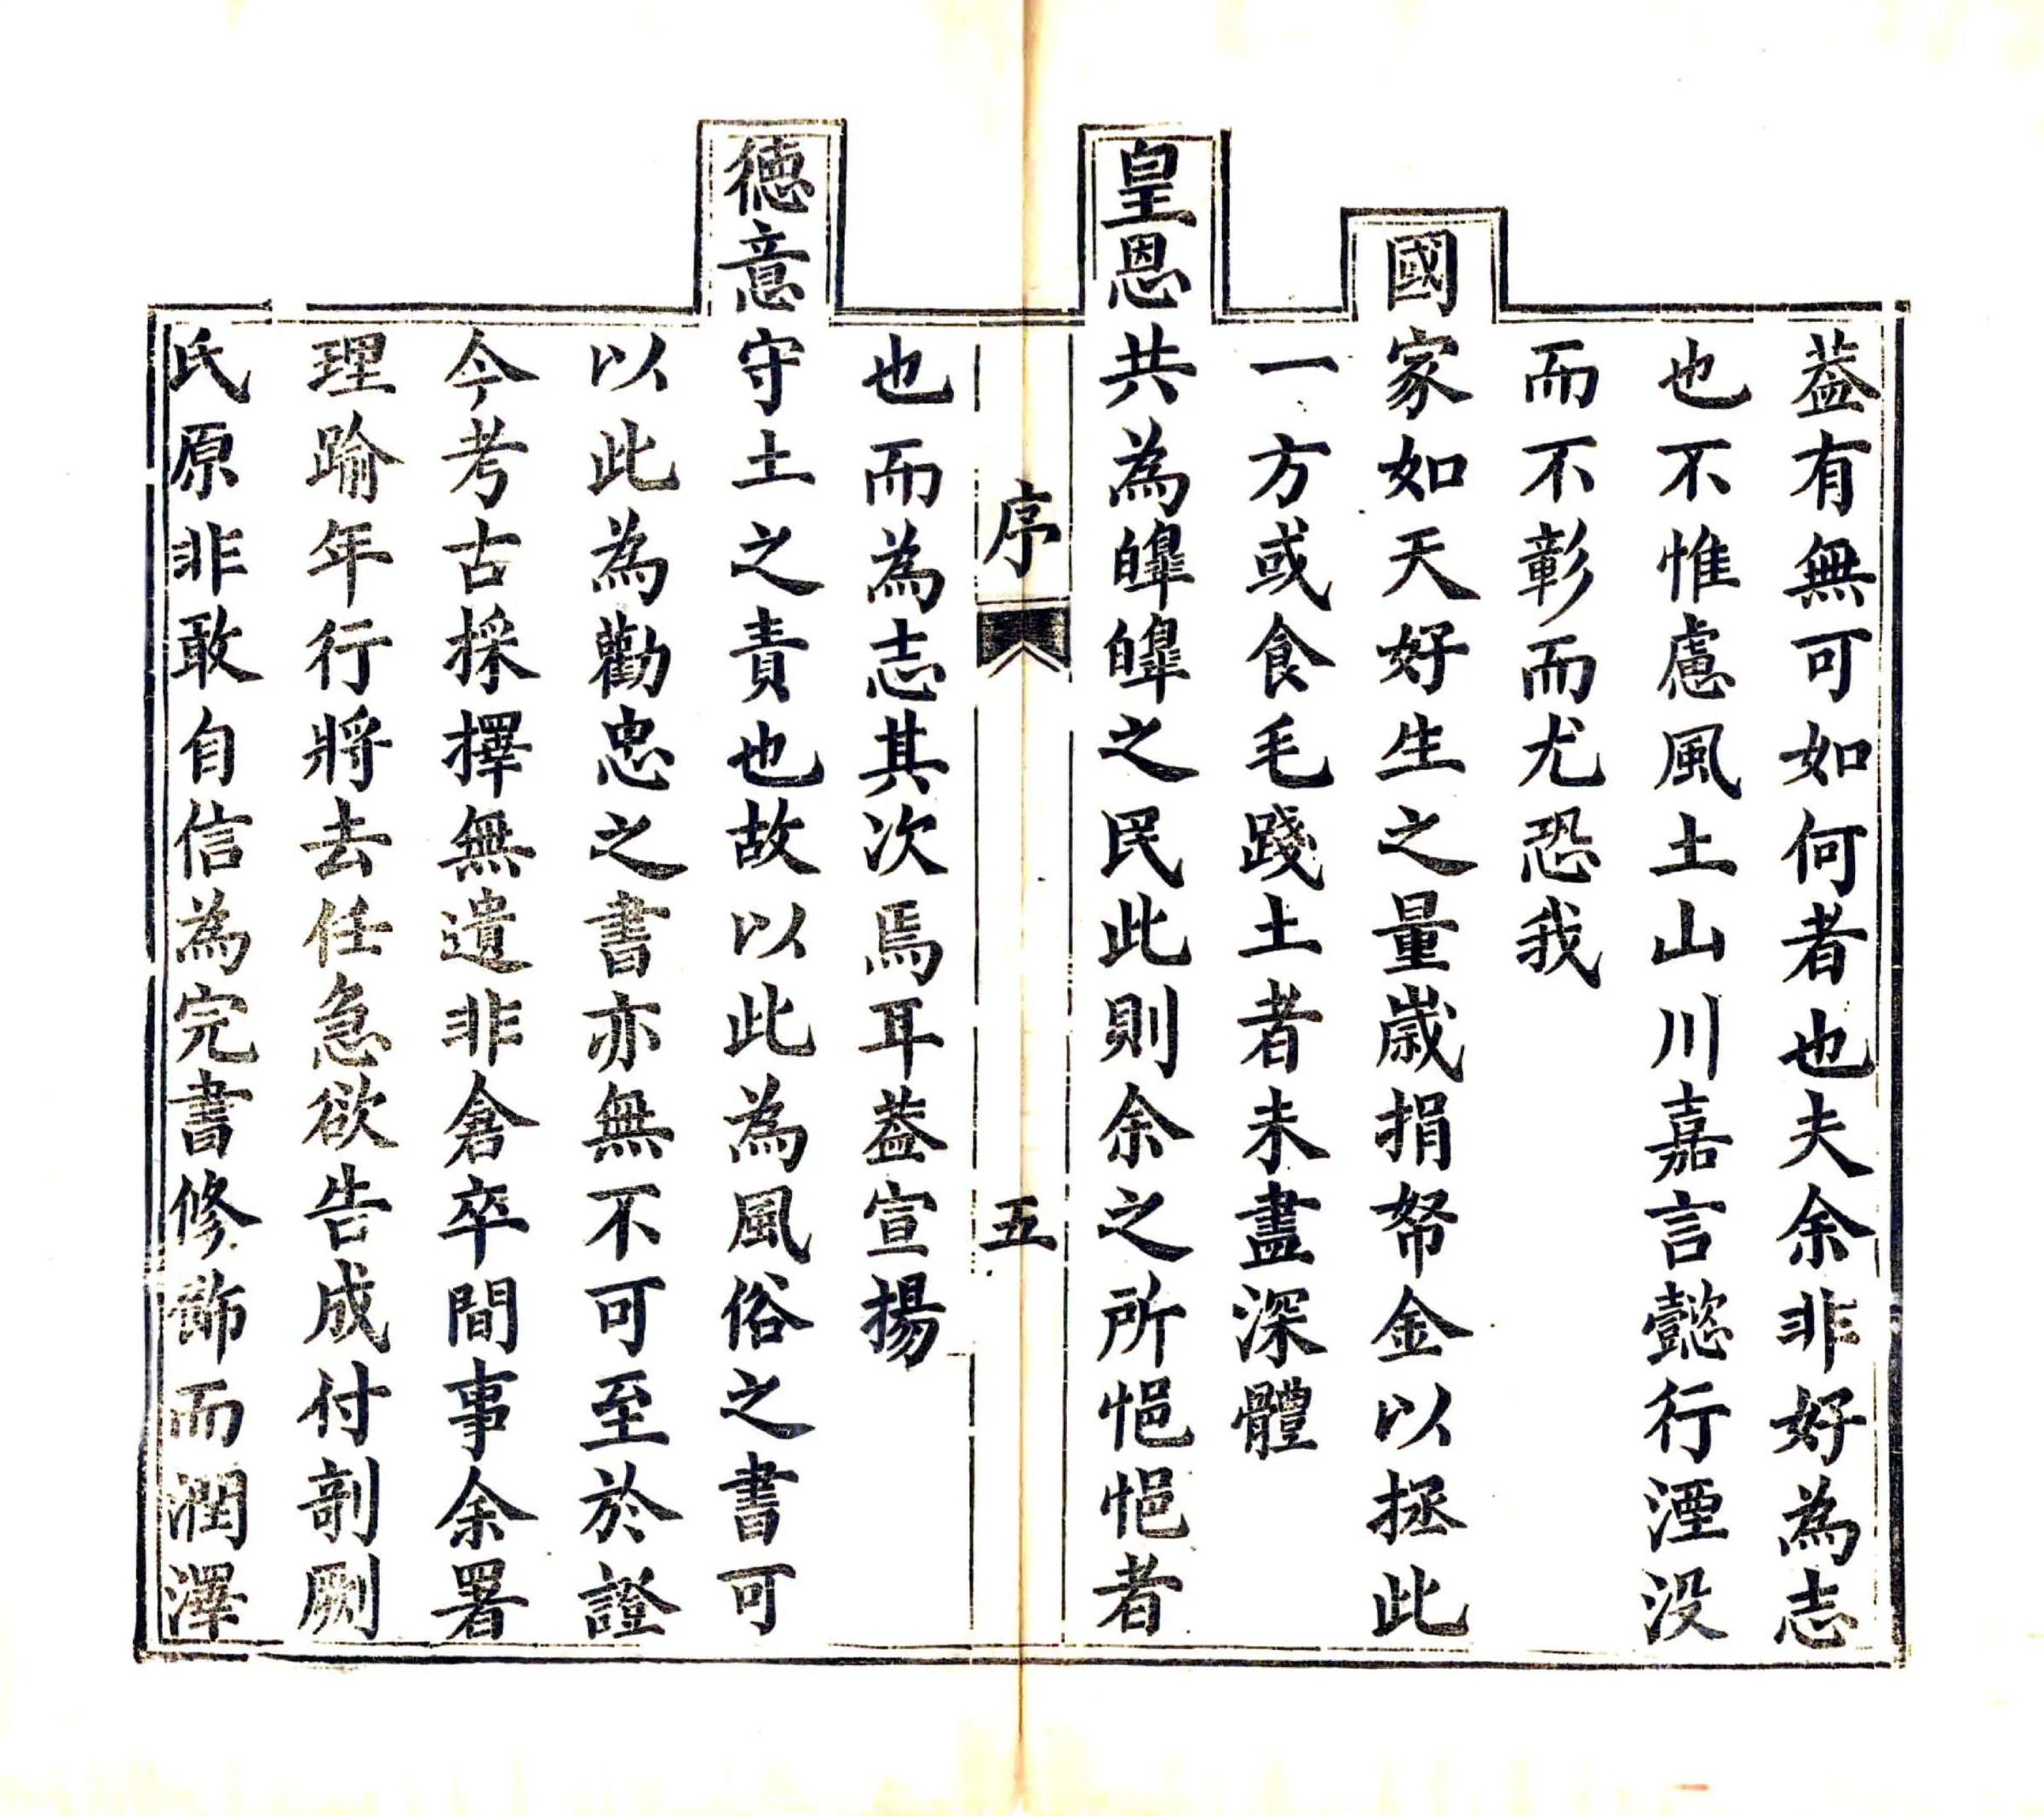 葢有無可如何者也夫余非好為志
也不惟慮風土山川嘉言懿行湮没
而不彰而尤恐我
國家如天好生之量嵗捐帑金以拯此
一方或食毛踐土者未盡深體
皇恩共為皥皥之民此則余之所悒悒者
序
五
也而為志其次焉耳葢宣揚
德意守土之責也故以此為風俗之書可
以此為勸忠之書亦無不可至於證
今考古採擇無遺非倉卒間事余署
理踰年行將去任急欲告成付剞劂
氏原非敢自信為完書修飾而潤澤